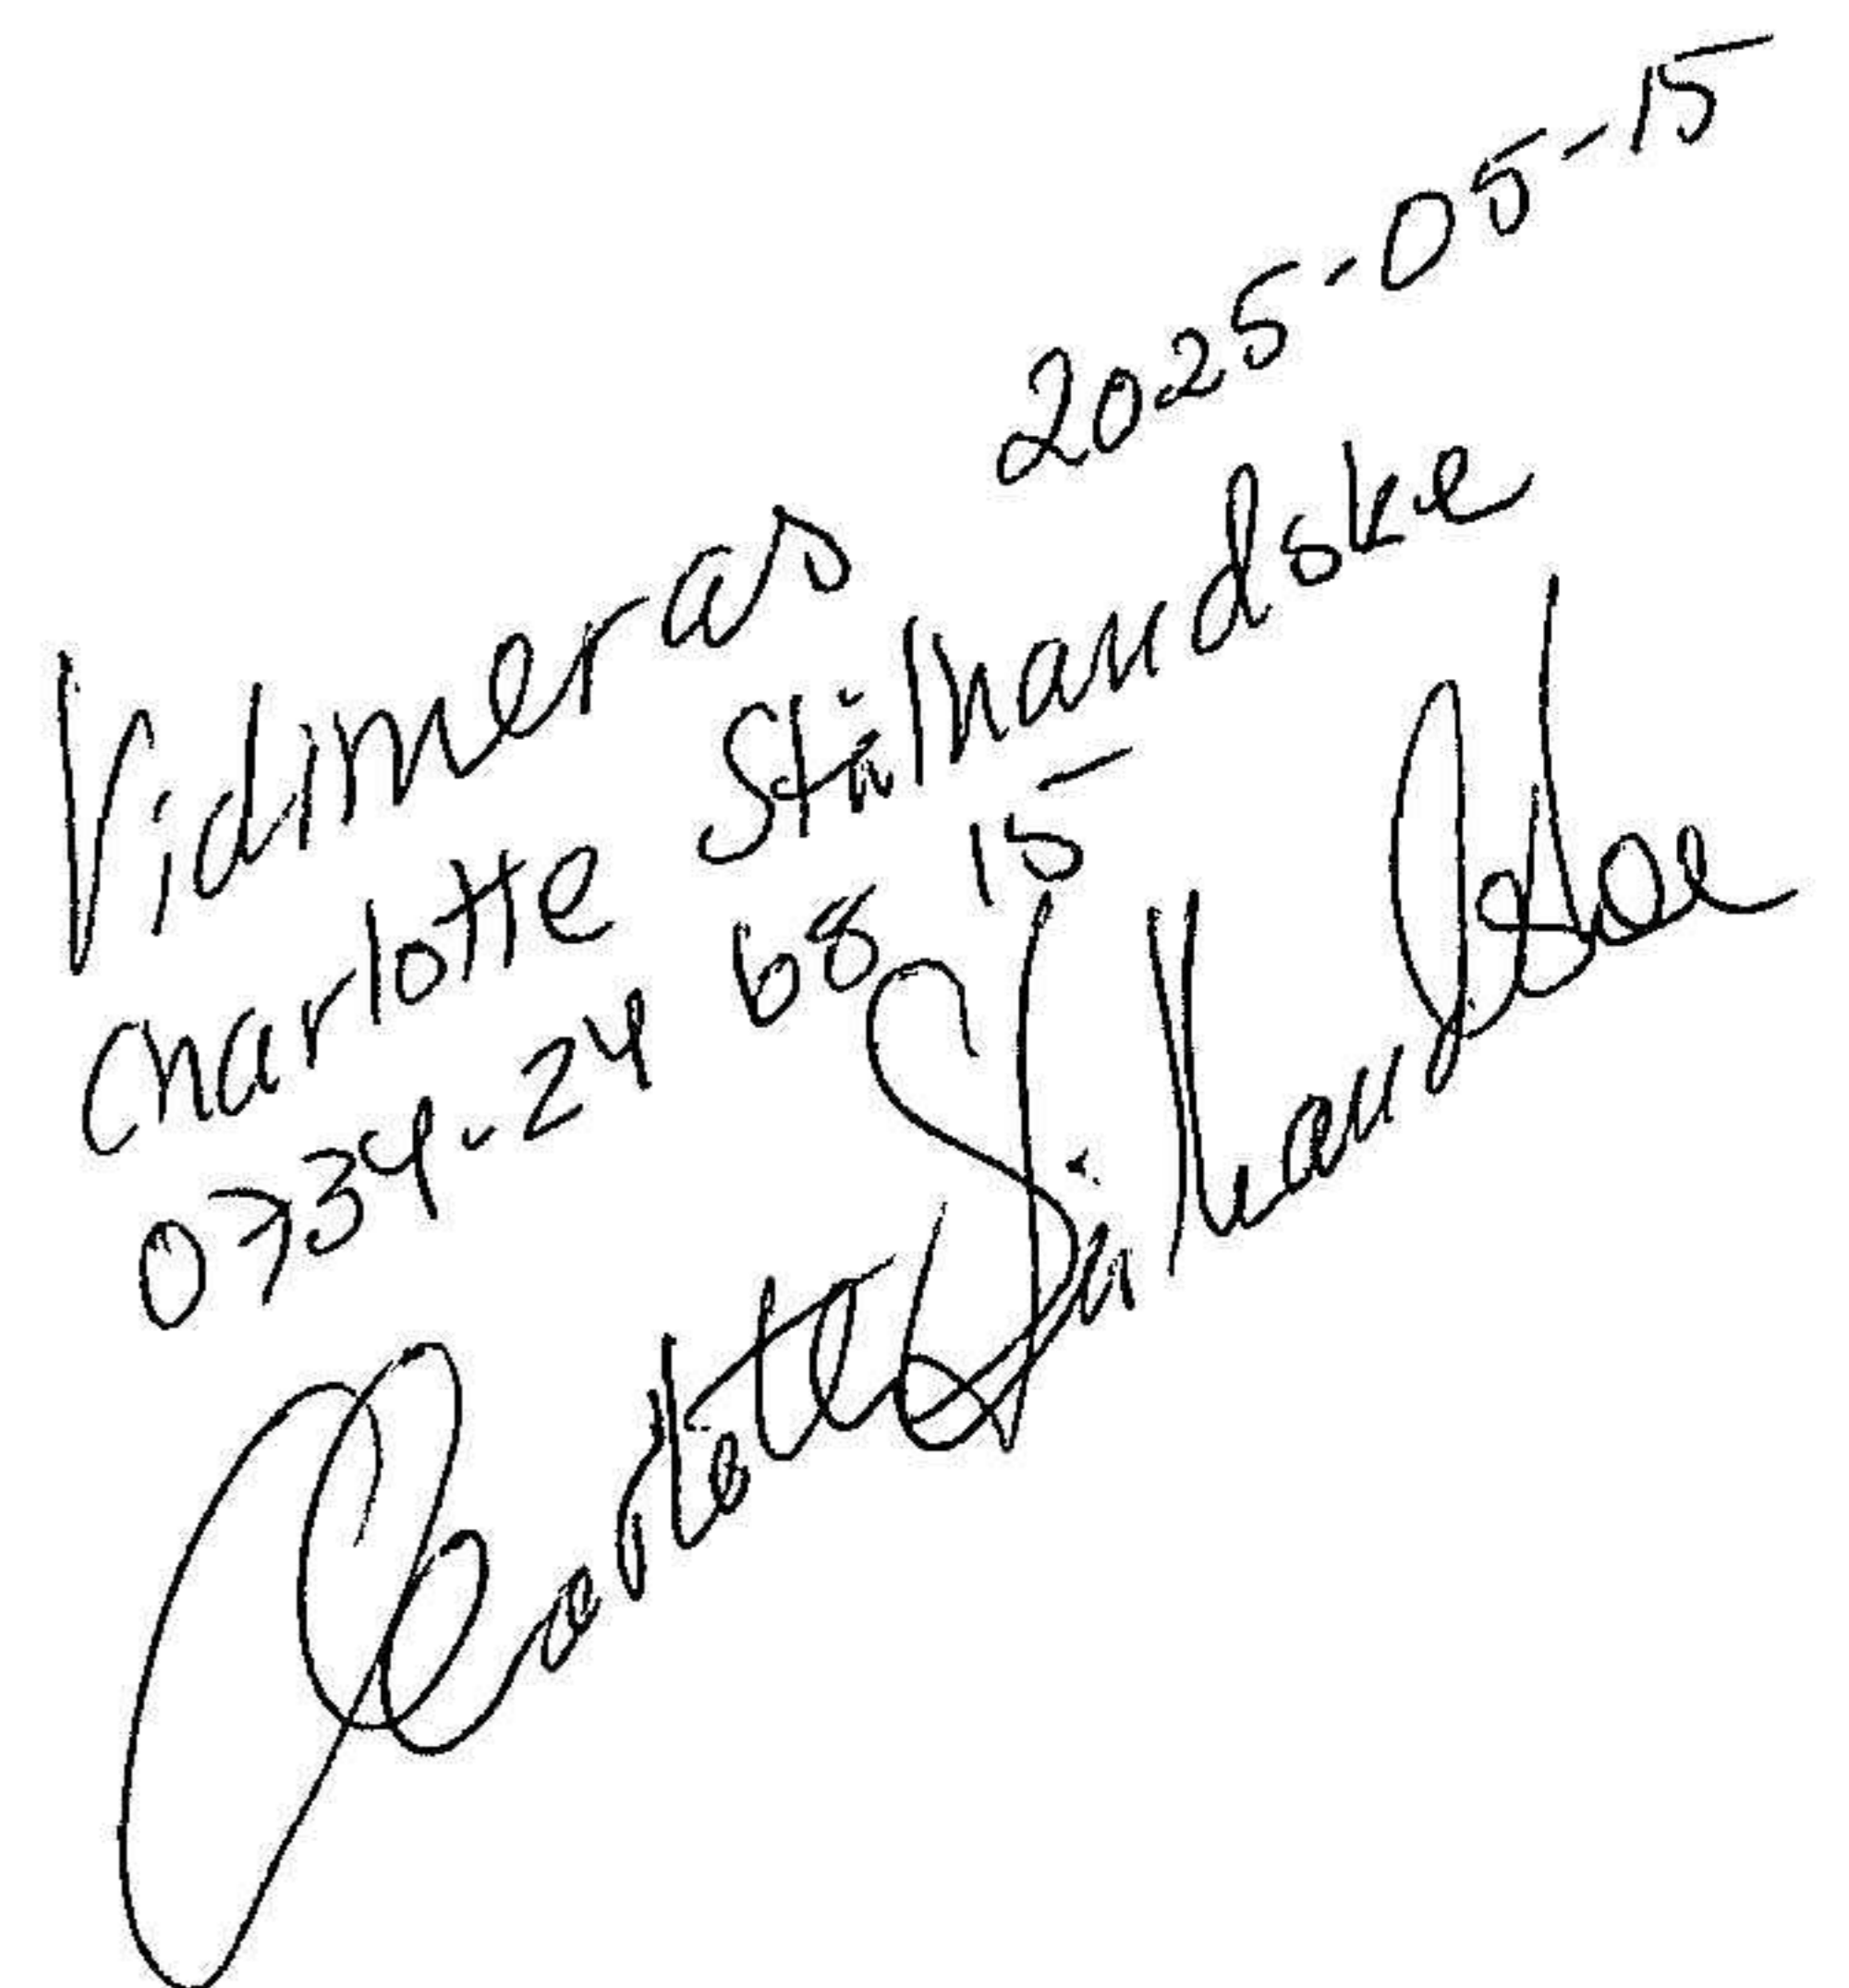 Vidimeras 2025-05-15
Charlotte Stålhandske
0734-24 68 15
Charlotte Stålhandske